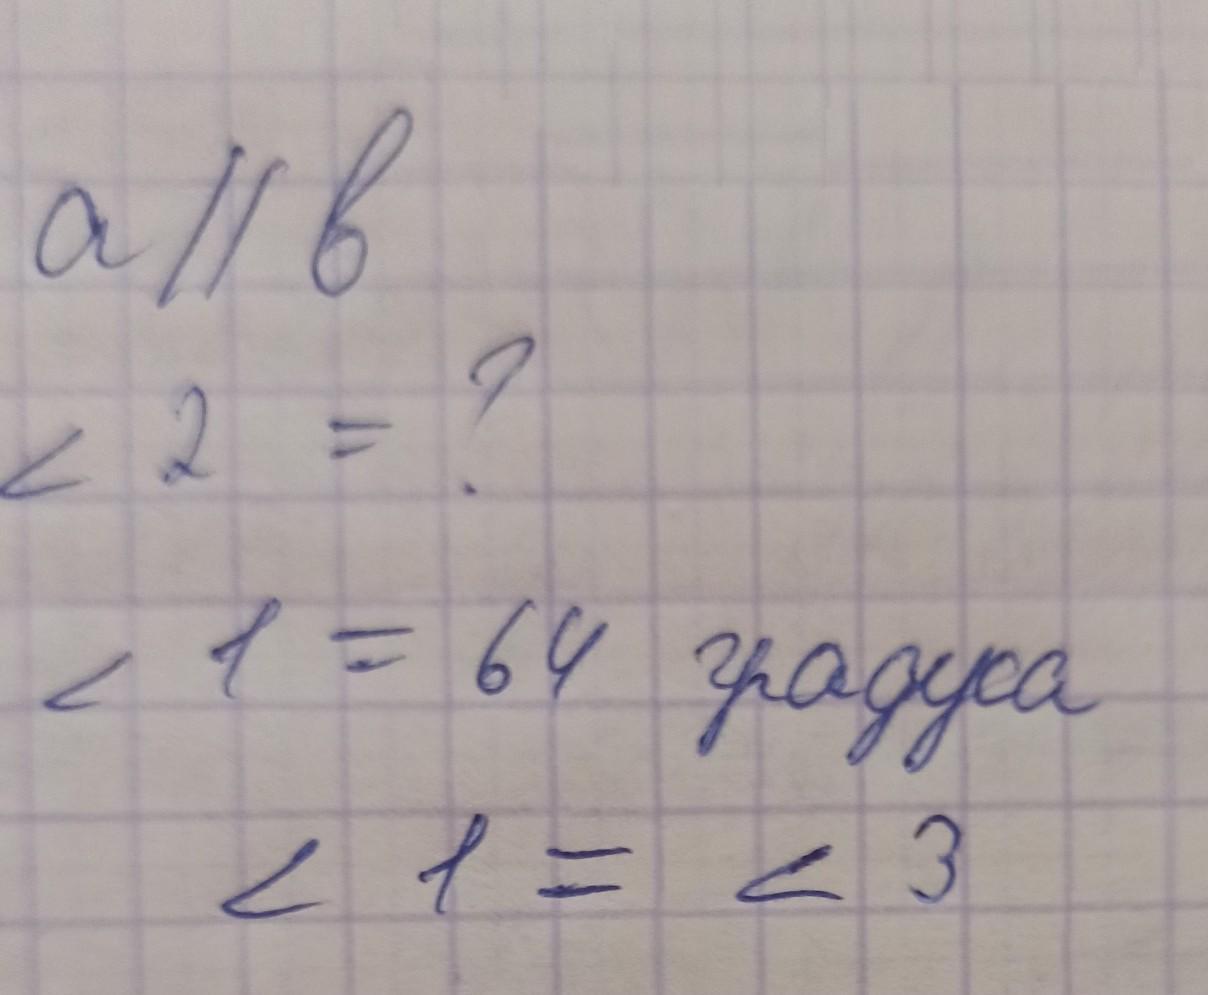 a || b
< 2 = ?
< 1 = 64 градуса
< 1 = < 3